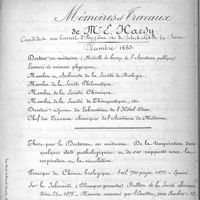 Mémoires et Travaux
de Mr E. Hardy
Candidat au Conseil d'Hygiène et de Salubrité de la Seine
Décembre 1883
Docteur en médecine (Médaille de bronze de l'Assistance publique)
Licencié ès sciences physiques
Membre et Archiviste de la Société de Biologie.
Membre de la Société Philomathique.
Membre de la Société Chimique.
Membre de la Société de Thérapeutique, etc
Directeur adjoint du Laboratoire de l'Hôtel-Dieu
Chef des Travaux chimiques de l'Académie de Médecine.
Thèse pour le Doctorat en médecine. De la température dans
quelques états pathologiques et de ses rapports avec la
respiration et la circulation.
Principes de Chimie biologique. 1 vol. 700 pages, 1871.
Sur le Jaborandi (Pilocarpus pennatus) Bulletin de la Société chimique